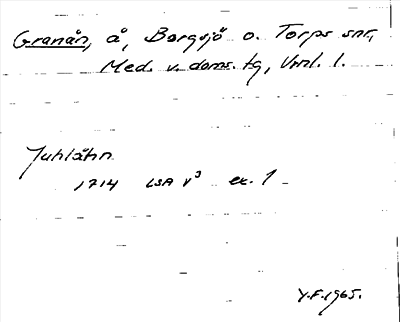 Granån, å, Borgsjö o. Torps snr,
Med. v. doms. tg, Vml. l.
Juhlåhn
1714 LSA V³ ex. 1
Y.F. 1965.